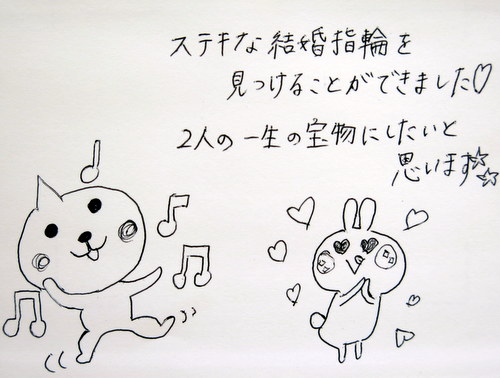 ステキな結婚指輪を
見つけることができました♡
2人の一生の宝物にしたいと
思います☆☆